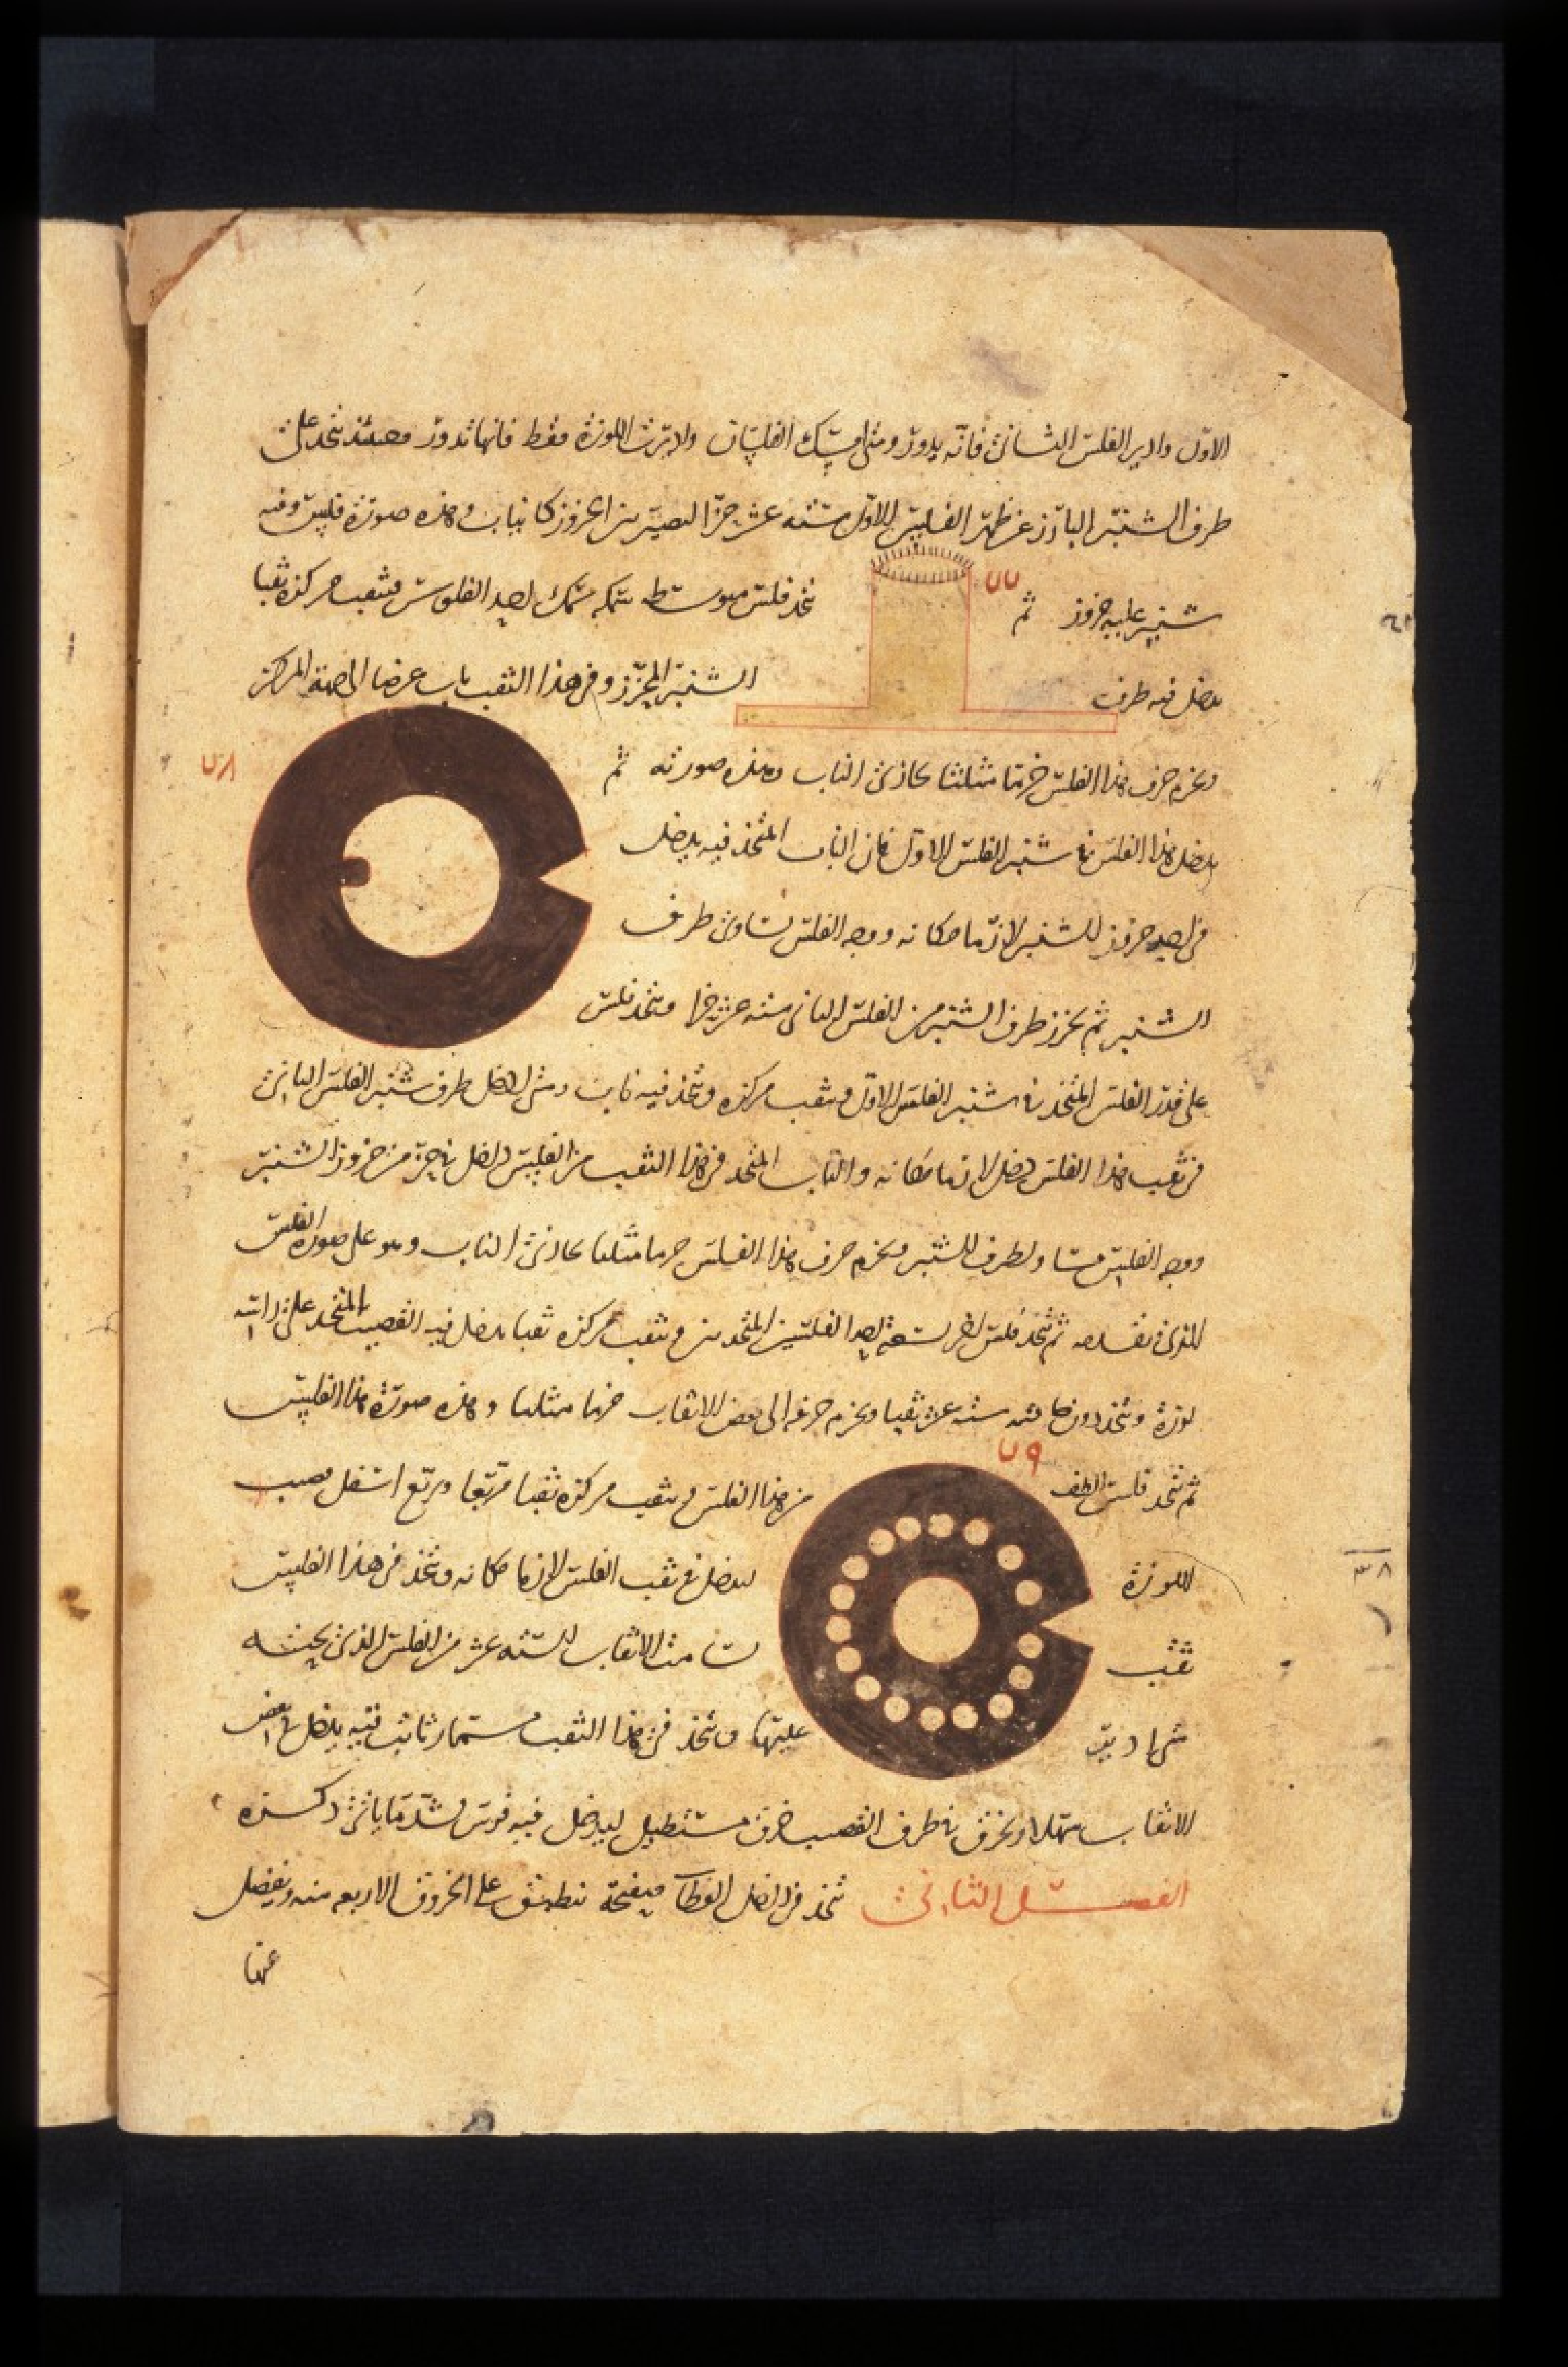 الاول وادير الفلس الثانى فانه يدور ومتى امسك الفلسان واديرت اللوزة فقط فانها تدور وحينئذ يتخذ على
طرف الشنبر البارز عن ظهر الفلس الاول ستة عشر حزا لتصير بين الحزوز كانياب وهذه صورة فلس وفيه
شنبر عليه حزوز ثم يتخذ فلس متوسط سمكه سمك احد الفلوس ويثقب مركزه ثقبا
يدخل فيه طرف الشنبر المحزز وفى هذا الثقب ناب عرضا الى جهة المركز
ويخرم حرف هذا الفلس خرما مثلثا يحاذى الناب وهذه صورته ثم
يدخل هذا الفلس فى شنبر الفلس الاول فان الناب المتخذ فيه يدخل
فى احد حزوز الشنبر لازما مكانه ووجه الفلس يساوى طرف
الشنبر ثم يحزز طرف الشنبر من الفلس الثانى ستة عشر حزا ويتخذ فلس
على قدر الفلس المتخذ فى شنبر الفلس الاول ويثقب مركزه ويتخذ فيه ناب ومتى ادخل طرف شنبر الفلس الثانى
فى ثقب هذا الفلس دخل لازما مكانه والناب المتخذ فى هذا الثقب من الفلس داخل فى حز من حزوز الشنبر
ووجه الفلس مساو لطرف الشنبر ويخرم حرف هذا الفلس خرما مثلثا يحاذى الناب وهو على صورة الفلس
الذى تقدمه ثم يتخذ فلس اخر بسعة احد الفلسين المتخذين ويثقب مركزه ثقبا يدخل فيه القصيب المتخذ على راسه
لوزة ويتخذ دون حافته ستة عشر ثقبا ويخرم حرفه الى بعض الاثقاب خرما مثلثا وهذه صورة هذا الفلس
ثم يتخذ فلس الطف من هذا الفلس ويثقب مركزه ثقبا مربعا ويربع اسفل قصيب
اللوزة ليدخل فى ثقب الفلس لازما مكانه ويتخذ فى هذا الفلس
ثقب يسامت الاثقاب الستة عشر من الفلس الذى تحته
متى ادير عليها ويتخذ فى هذا الثقب مسمار ثابت فيه يدخل فى بعض
الاثقاب سهلا ويخرق فى طرف القصيب خرق مستطيل ليدخل فيه فرس يشد ما ياتى ذكره
الفصل الثانى يتخذ فى داخل الغطا صفيحة تنطبق على الخروق الاربعة منه ويفضل
عنها
٧٧
٧٨
٧٩
٣٨